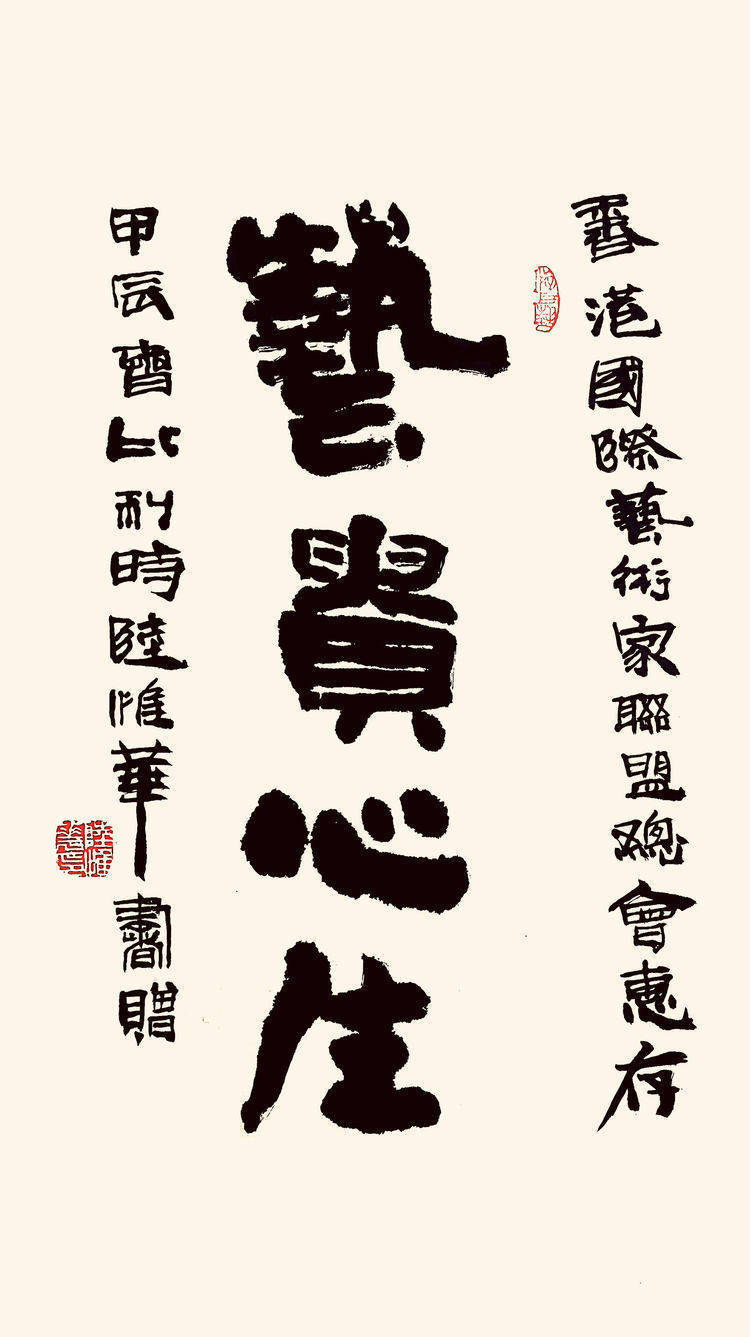 香港國際藝術家聯盟總會惠存
藝貴心生
甲辰 比利時陸惟華書贈
陸惟華印